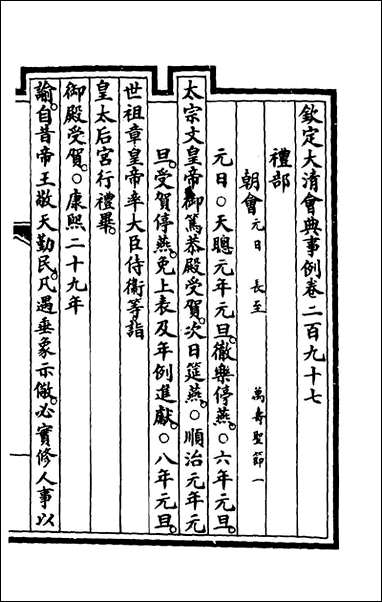 欽定大清會典事例卷二百九十七
禮部
朝會元日 長至 萬壽聖節一
元日○天聰元年元旦。徹樂停燕。○六年元旦。
太宗文皇帝御篤恭殿受賀。次日筵燕。○順治元年元
旦。受賀停燕。免上表及年例進獻。○八年元旦。
世祖章皇帝率大臣侍衞等詣
皇太后宮行禮畢。
御殿受賀。○康熙二十九年
諭。自昔帝王敬天勤民。凡遇垂象示儆。必實修人事以